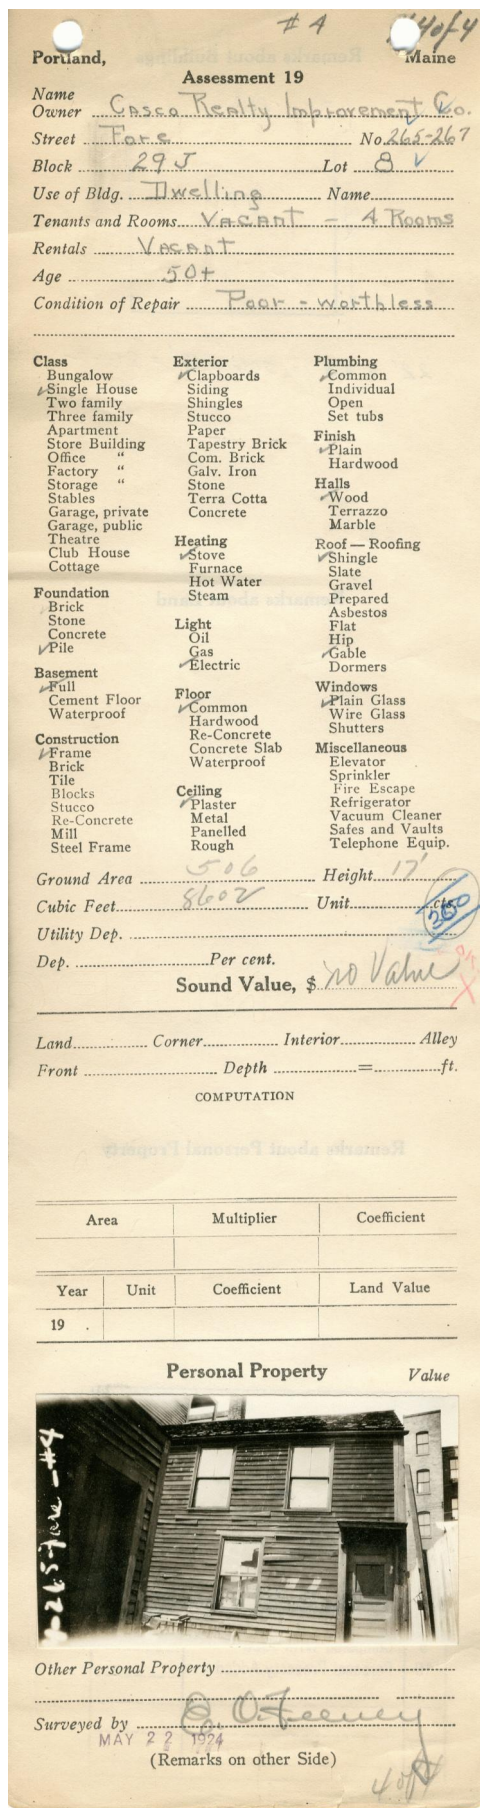 # 4
4 of 4
Portland, Maine
Assessment 19
Name
Owner Casco Realty Improvement Co.
Street Fore No. 265-267
Block 29 J Lot 8
Use of Bldg. Dwelling Name
Tenants and Rooms Vacant - 4 Rooms
Rentals Vacant
Age 50+
Condition of Repair Poor - worthless
Class
Bungalow
Single House
Two family
Three family
Apartment
Store Building
Office "
Factory "
Storage "
Stables
Garage, private
Garage, public
Theatre
Club House
Cottage
Foundation
Brick
Stone
Concrete
Pile
Basement
Full
Cement Floor
Waterproof
Construction
Frame
Brick
Tile
Blocks
Stucco
Re-Concrete
Mill
Steel Frame
Exterior
Clapboards
Siding
Shingles
Stucco
Paper
Tapestry Brick
Com. Brick
Galv. Iron
Stone
Terra Cotta
Concrete
Heating
Stove
Furnace
Hot Water
Steam
Light
Oil
Gas
Electric
Floor
Common
Hardwood
Re-Concrete
Concrete Slab
Waterproof
Ceiling
Plaster
Metal
Panelled
Rough
Plumbing
Common
Individual
Open
Set tubs
Finish
Plain
Hardwood
Halls
Wood
Terrazzo
Marble
Roof — Roofing
Shingle
Slate
Gravel
Prepared
Asbestos
Flat
Hip
Gable
Dormers
Windows
Plain Glass
Wire Glass
Shutters
Miscellaneous
Elevator
Sprinkler
Fire Escape
Refrigerator
Vacuum Cleaner
Safes and Vaults
Telephone Equip.
Ground Area 506 Height 17'
Cubic Feet 8602 Unit cts.
350
Utility Dep.
Dep. Per cent.
Sound Value, $ no Value
Land Corner Interior Alley
Front Depth = ft.
COMPUTATION
Area Multiplier Coefficient
Year Unit Coefficient Land Value
19 .
Personal Property Value
265 Fore - #4
Other Personal Property
Surveyed by E. O. Feeney
MAY 22 1924
(Remarks on other Side)
4 of 4